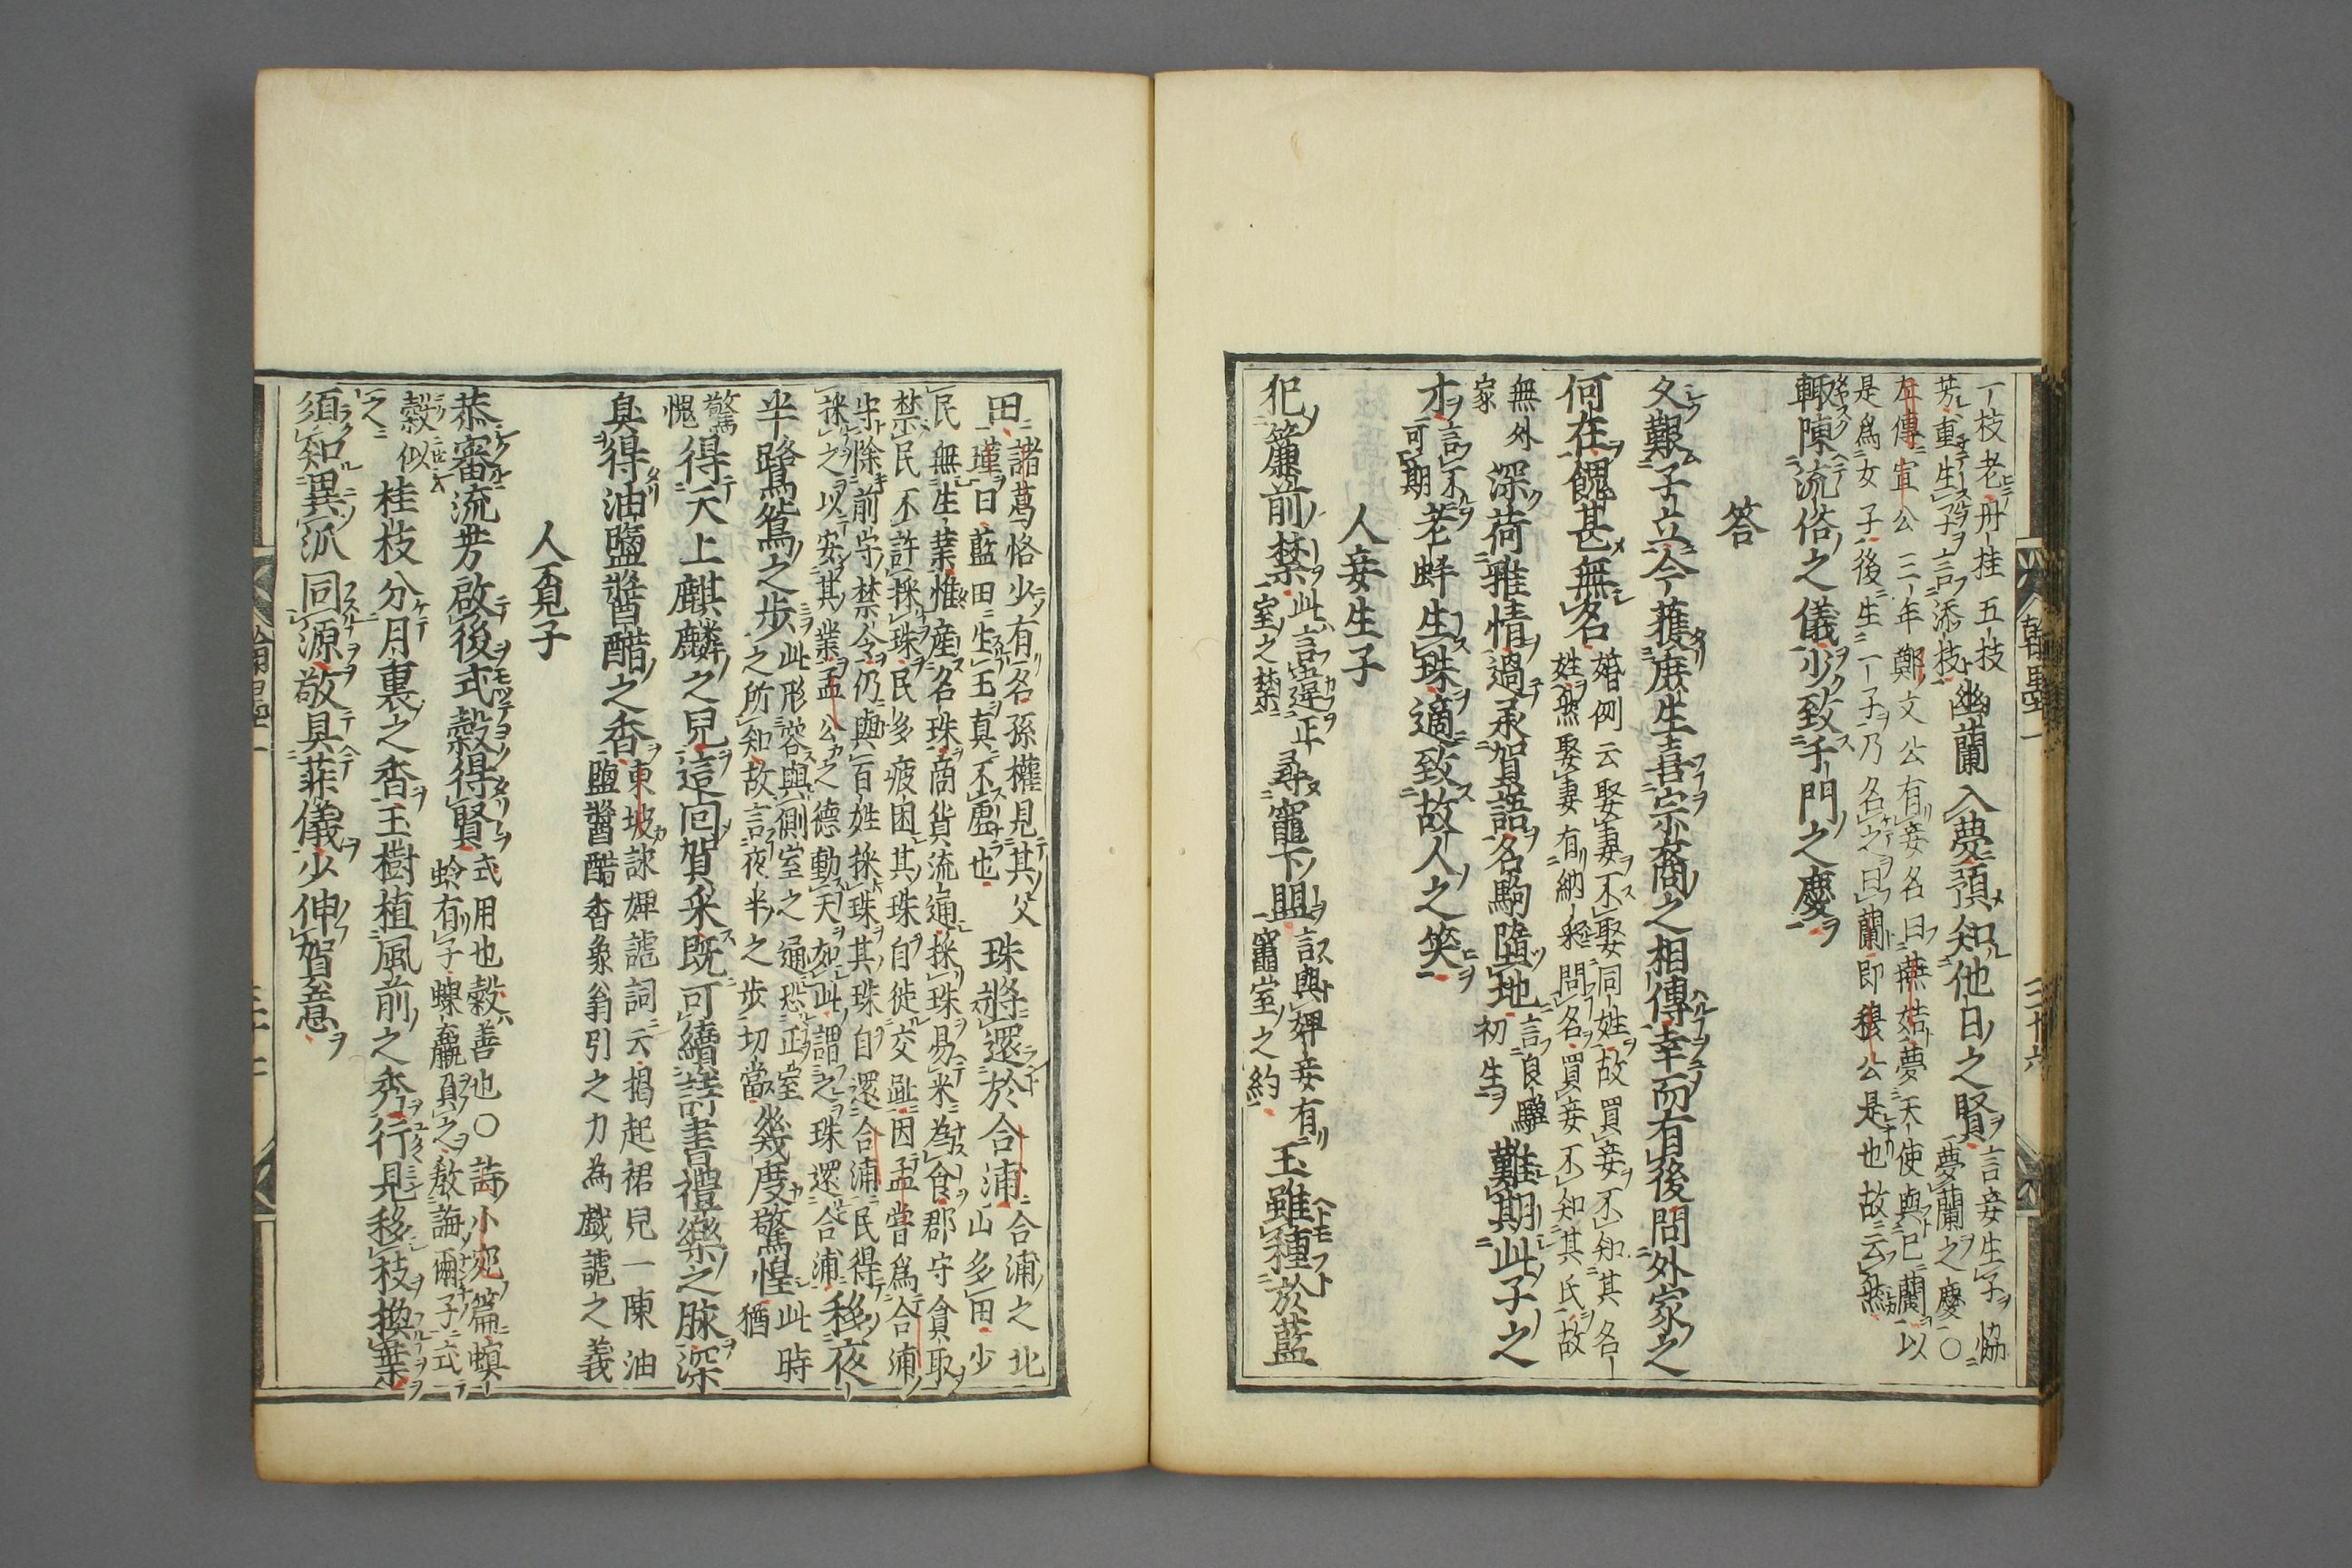 丁枝老丹桂五枝
芳重生子言添枝
幽蘭入夢預知他日之賢
言妾生子恊
夢蘭之慶○
左傳宣公三年鄭文公有妾名曰燕姞夢天使與已蘭以
是爲女子後生一子乃名之曰蘭即穆公是也故云然
輙陳流俗之儀少致千門之慶
答
久艱子立今獲庶生喜宗裔之相傳幸而有後問外家之
何在餽甚無名
婚例云娶妻不娶同姓故買妾不知其名
姓然娶妻有納釆問名買妾不知其氏故
無外
家
深荷雅情過承賀語名駒墮地
言良驥
初生
難期此子之
才
言不
可期
老蚌生珠適致故人之笑
人妾生子
犯簾前禁
此言違正
室之禁
尋竈下盟
言與婢妾有
竈室之約
玉雖種於藍
田
諸葛恪少有名孫權見其父
瑾曰藍田生玉真不虛也
珠將還於合浦
合浦之北
山多田少
民無生業惟産名珠商貨流通採珠易米為食郡守貪取
禁民不許採珠民多疲困其珠自徙交趾因孟嘗爲合浦
守除前守禁令仍與百姓採珠其珠自還合浦民得
採之以安其業孟公之德動天如此謂之珠還合浦
移夜
半路鴛鴦之步
此形容與側室之通恐正室
之所知故言夜半之步切當
幾度驚惶
此時
猶
驚
愧
得天上麒麟之兒這囘賀釆既可續詩書禮樂之脉深
臭得油鹽醬醋之香
東坡詠婢謔詞云揭起裙兒一陳油
鹽醬醋香象翁引之力為戲謔之義
人覔子
恭審流芳啟後式糓得賢
式用也糓善也○詩小宛篇螟
蛉有子蜾蠃負之敎誨爾子式
糓似
之
桂枝分月裏之香玉樹植風前之秀行見移枝換葉
須知異派同源敬具菲儀少伸賀意
翰墨一
三十六